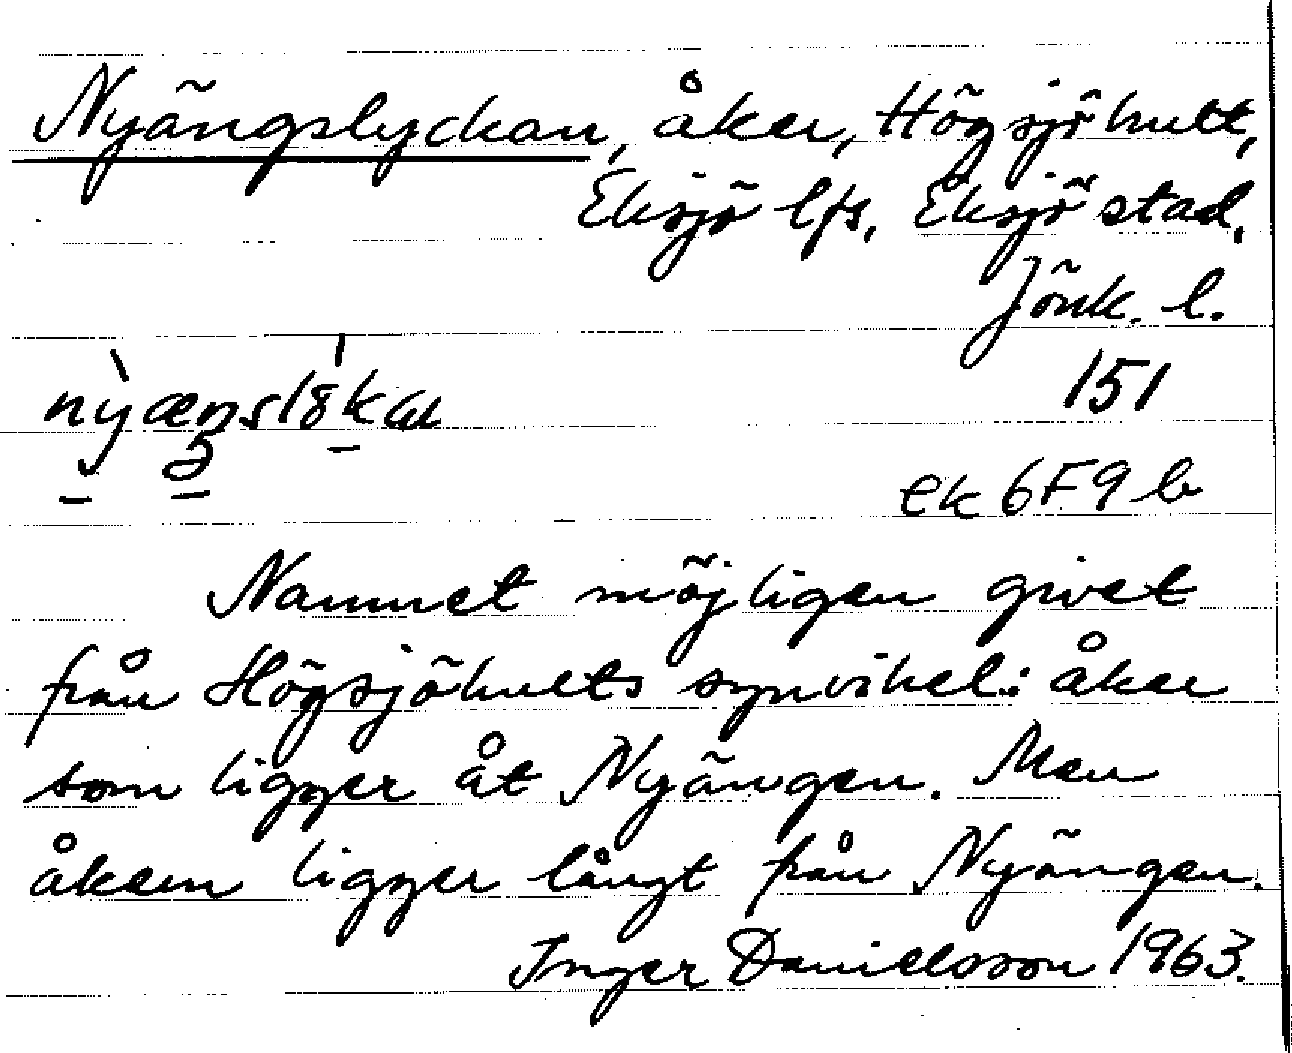 Nyängslyckan, åker, Högsjöhult,
Eksjö lfs, Eksjö stad,
Jönk. l.
151
ek 6F9 b
Namnet möjligen givet
från Högsjöhults synvikel: åker
som ligger åt Nyängen. Men
åkern ligger långt från Nyängen.
Inger Danielsson 1963.